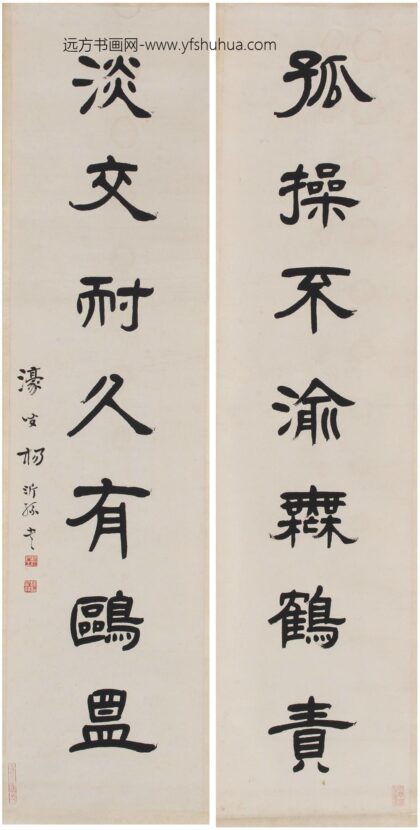 远方书画网-www.yfshuhua.com
孤操不渝無鶴責
淡交耐久有鷗盟
濠叟楊沂孫書